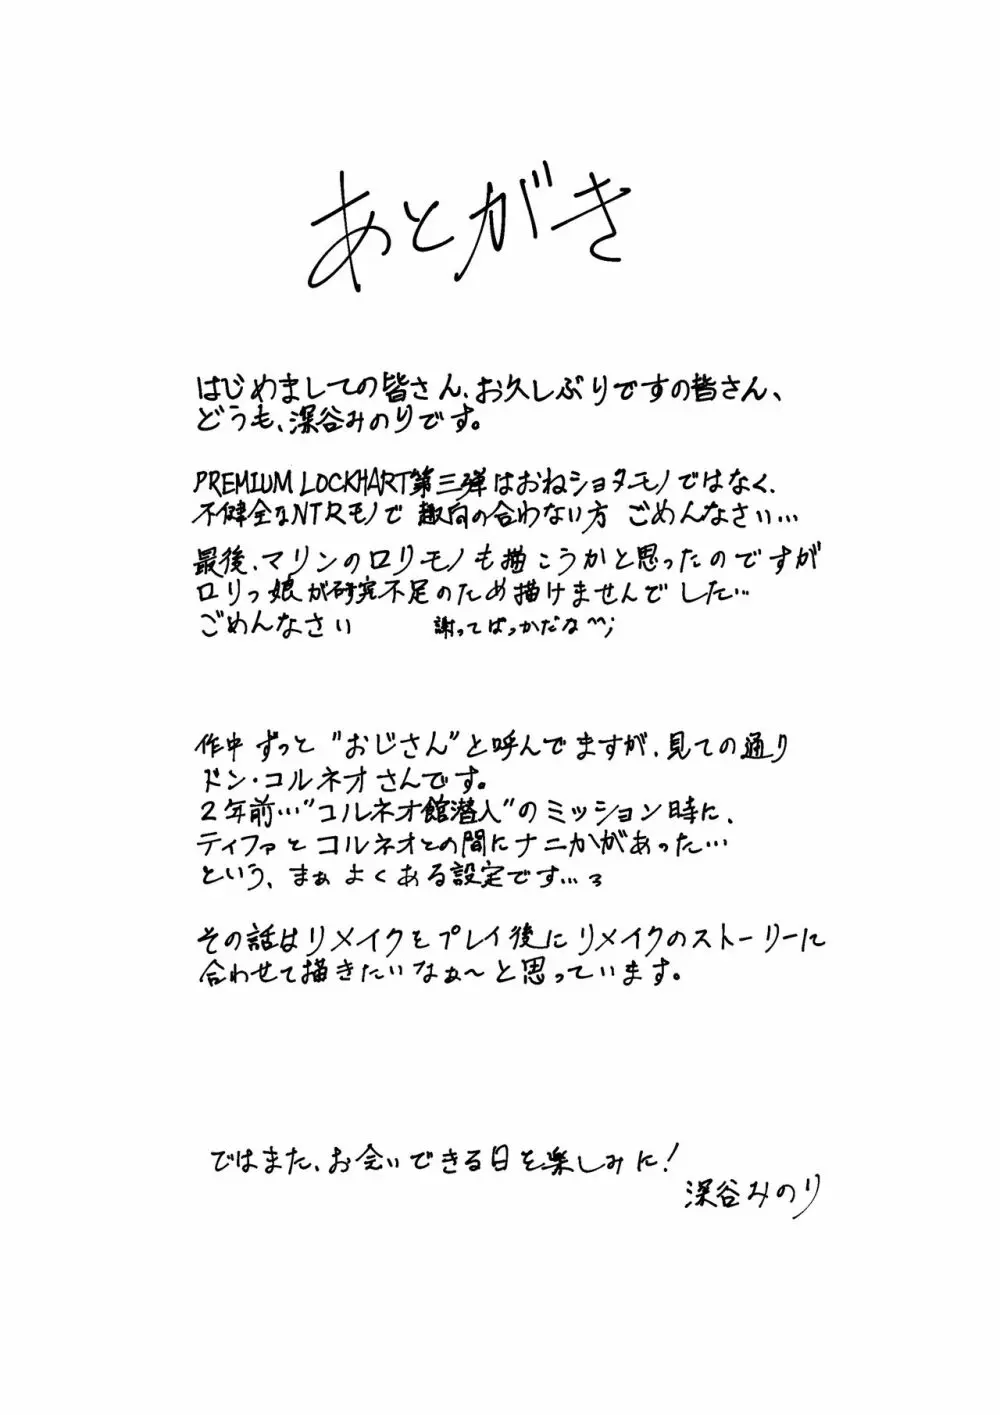 あとがき
はじめましての皆さん、お久しぶりですの皆さん、
どうも、深谷みのりです。
PREMIUM LOCKHART第三弾はおねショタモノではなく、
不健全なNTRモノで 趣向の合わない方 ごめんなさい…
最後、マリンのロリモノも描こうかと思ったのですが
ロリっ娘が研究不足のため描けませんでした…
ごめんなさい 謝ってばっかだな^^;
作中 ずっと "おじさん" と呼んでますが、見ての通り
ドン・コルネオさんです。
2年前…"コルネオ館潜入"のミッション時に、
ティファとコルネオとの間にナニかがあった…
という、まぁ よくある設定です…
その話はリメイクをプレイ後にリメイクのストーリーに
合わせて描きたいなぁ～と思っています。
ではまた、お会いできる日を楽しみに!
深谷みのり